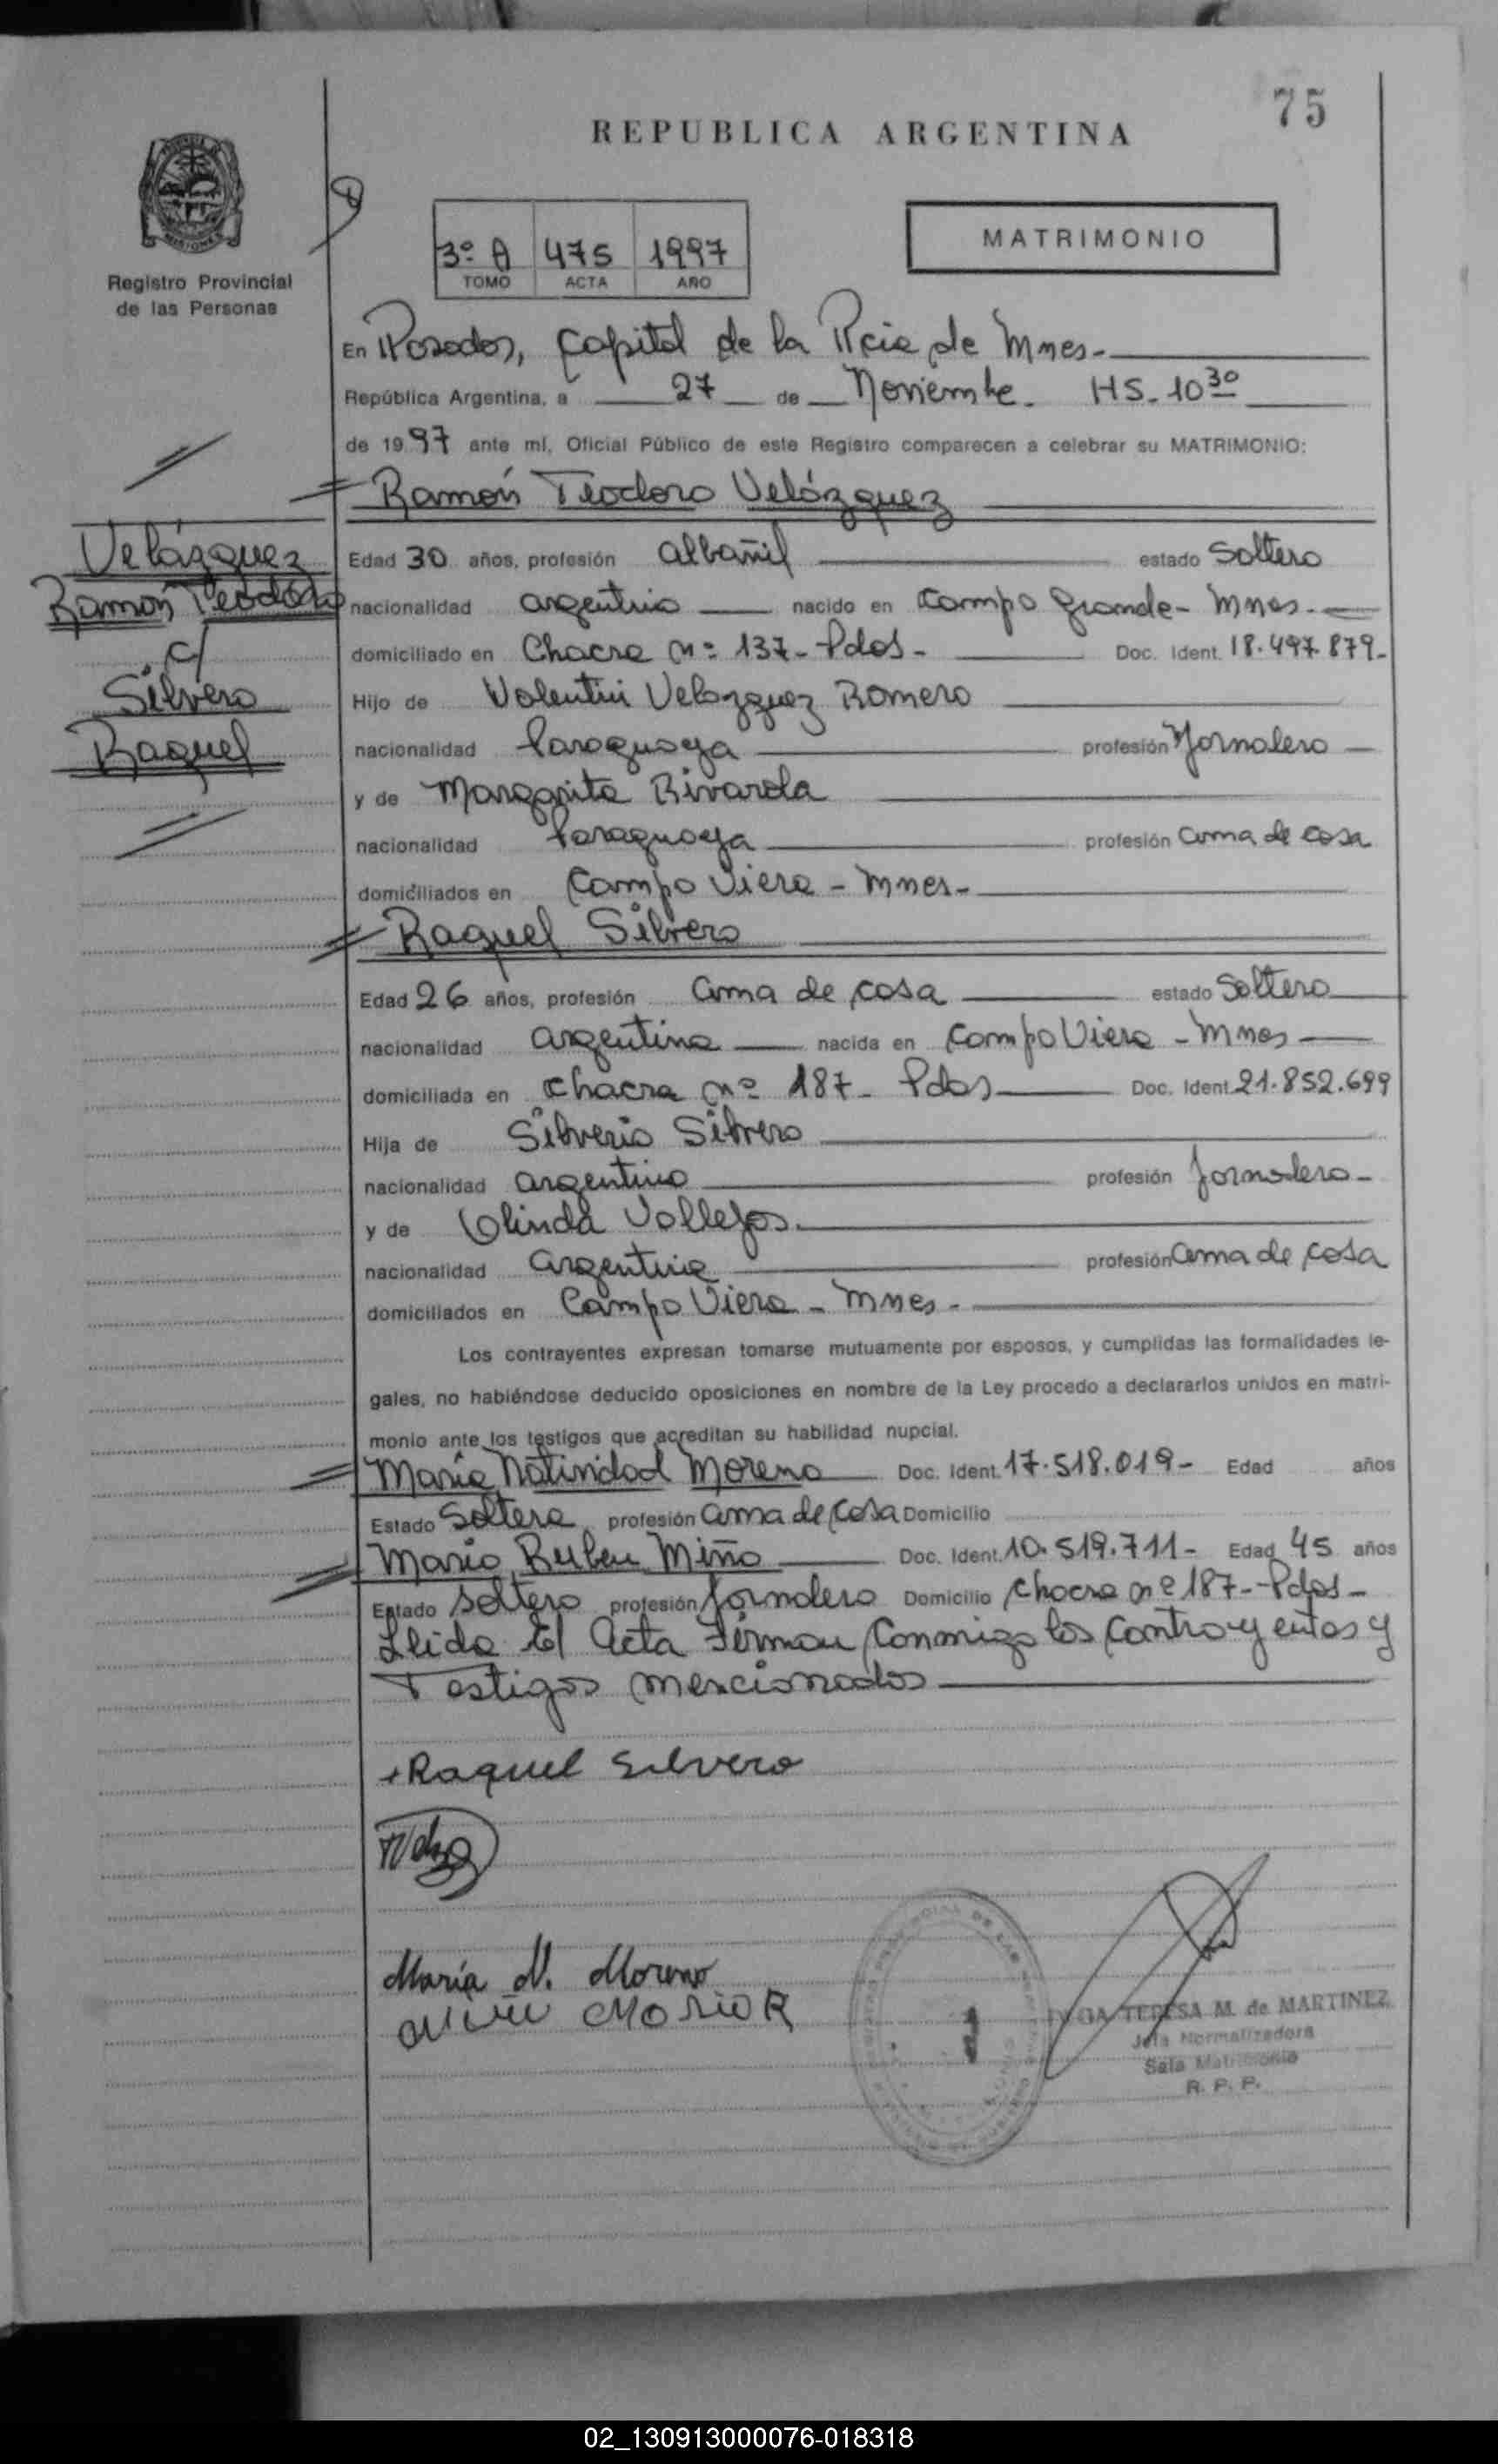 75
REPUBLICA ARGENTINA
Registro Provincial
de las Personas
3º A 475 1997
TOMO ACTA AÑO
MATRIMONIO
En Posadas, Capital de la Pcia de Mnes.-
República Argentina, a 27 de Noviembre. HS. 10 30
de 1997 ante mí, Oficial Público de este Registro comparecen a celebrar su MATRIMONIO:
Ramón Teodoro Velázquez
Velázquez
Ramón Teodoro
c/
Silvero
Raquel
Edad 30 años, profesión albañil estado Soltero
nacionalidad argentino nacido en Campo Grande - Mnes.-
domiciliado en Chacra Nº 137 - Pdas - Doc. Ident. 18.497.879-
Hijo de Valentin Velazquez Romero
nacionalidad Paraguaya profesión Jornalero
y de Margarita Rivarola
nacionalidad Paraguaya profesión ama de casa
domiciliados en Campo Viera - Mnes-
Raquel Silvero
Edad 26 años, profesión ama de casa estado Soltera
nacionalidad argentina nacida en Campo Viera - Mnes
domiciliada en Chacra nº 187 - Pdas Doc. Ident. 21.852.699
Hija de Silverio Silvero
nacionalidad argentino profesión Jornalero-
y de Olinda Vallejos.
nacionalidad argentina profesión ama de casa
domiciliados en Campo Viera - Mnes.-
Los contrayentes expresan tomarse mutuamente por esposos, y cumplidas las formalidades le-
gales, no habiéndose deducido oposiciones en nombre de la Ley procedo a declararlos unidos en matri-
monio ante los testigos que acreditan su habilidad nupcial.
María Natividad Moreno Doc. Ident. 17.518.019- Edad años
Estado Soltera profesión ama de casa Domicilio
Mario Ruben Miño Doc. Ident. 10.519.711- Edad 45 años
Estado Soltero profesión Jornalero Domicilio Chacra nº 187 - Pdas-
Leida El Acta Firman Conmigo los Contrayentes y
Testigos mencionados
Raquel Silvero
María N. Moreno
Miño Mario R
1
TERESA M. de MARTINEZ
Jefa Normalizadora
Sala Matrimonio
R. P. P.
02_130913000076-018318